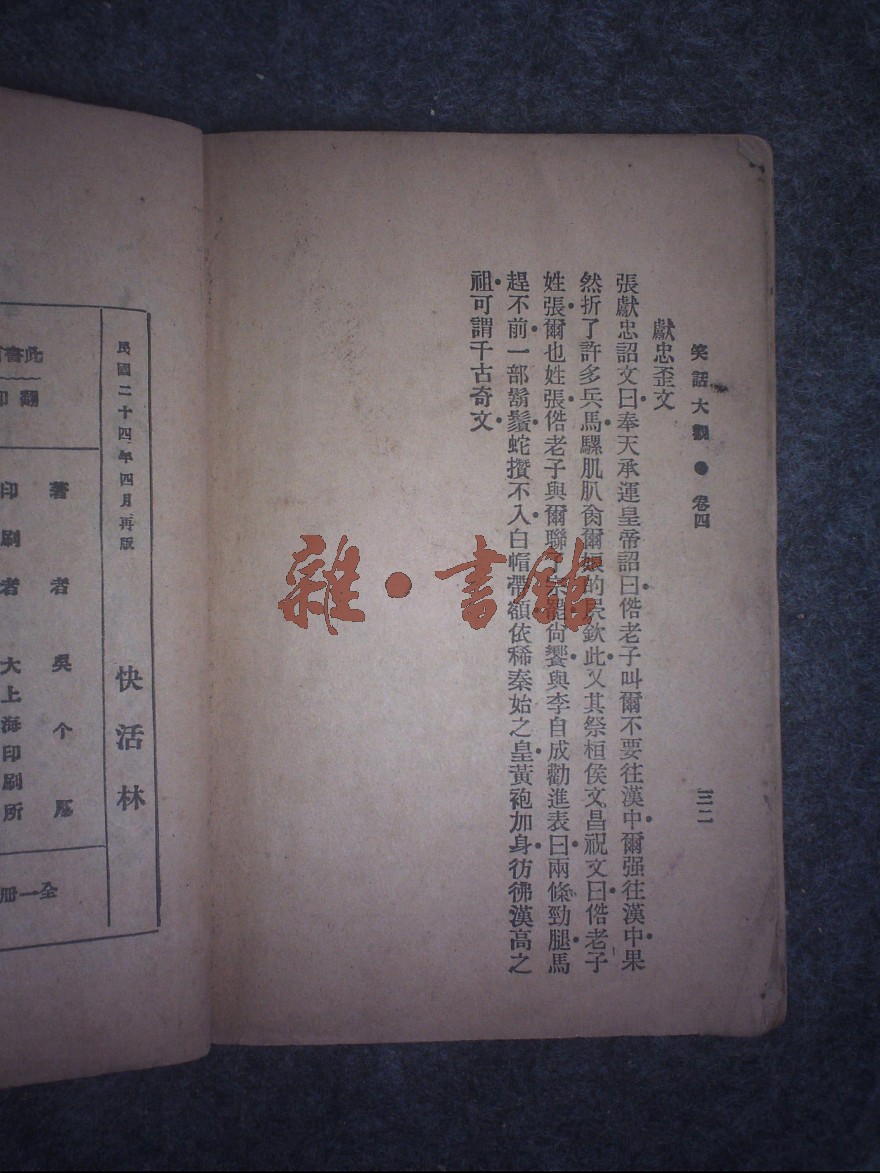 笑話大觀●卷四
三二
獻忠歪文
張獻忠詔文曰奉天承運皇帝詔曰偺老子叫爾不要往漢中爾强往漢中果
然折了許多兵馬騾肌肌肏爾娘的欽此又其祭桓侯文昌祝文曰偺老子
姓張爾也姓張偺老子與爾聯了宗罷尙饗與李自成勸進表曰兩條勁腿馬
趕不前一部鬍鬚蛇攢不入白帽帶額依稀秦始之皇黃袍加身彷彿漢高之
祖可謂千古奇文
雜·書館
快活林
民國二十四年四月再版
著者吳个厂
印刷者大上海印刷所
全一册
此書
翻印